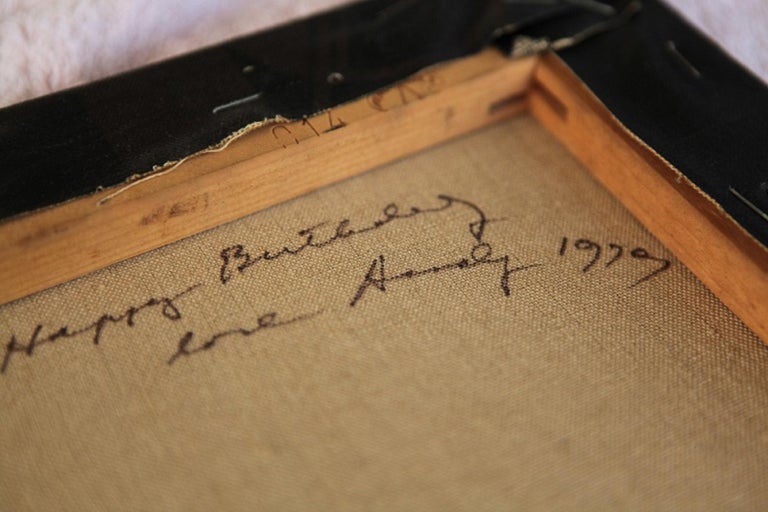 014
Happy Birthday
love Andy 1979